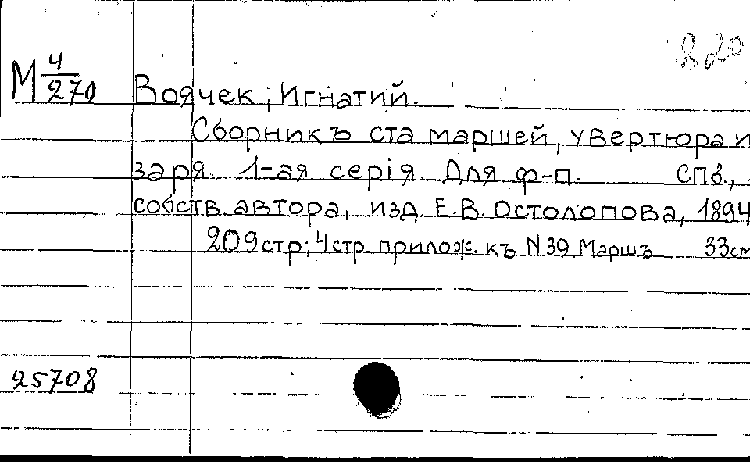 220
М 4/270
Воячек, Игнатий.
Сборникъ ста маршей, увертюра и
заря. 1-ая серія. Для ф-п. СПб.,
собств. автора, изд. Е.В. Остолопова, 1894
209 стр; 4 стр. прилож. къ N 39 Маршъ 33cm
25708